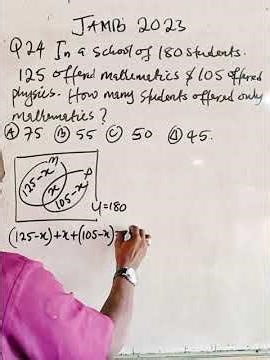 JAMB 2023
Q24 In a school of 180 students.
125 offered mathematics & 105 offered
physics. How many students offered only
mathematics?
Ⓐ 75 Ⓑ 55 Ⓒ 50 Ⓓ 45.
M
P
125-x
x
105-x
U=180
(125-x)+x+(105-x)=